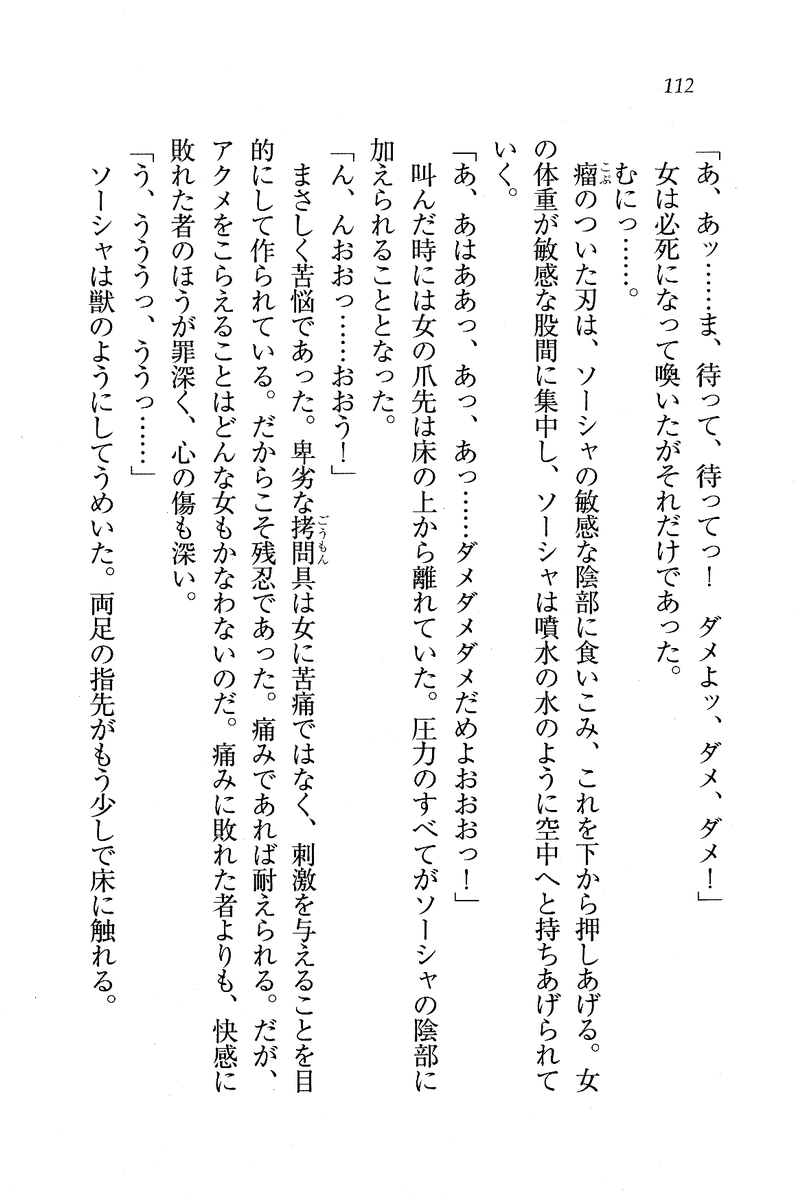 112
「あ、あッ……ま、待って、待ってっ！　ダメよッ、ダメ、ダメ！」
　女は必死になって喚いたがそれだけであった。
　むにっ……。
　瘤のついた刃は、ソーシャの敏感な陰部に食いこみ、これを下から押しあげる。女
の体重が敏感な股間に集中し、ソーシャは噴水の水のように空中へと持ちあげられて
いく。
「あ、あはああっ、あっ、あっ……ダメダメダメだめよおおおっ！」
　叫んだ時には女の爪先は床の上から離れていた。圧力のすべてがソーシャの陰部に
加えられることとなった。
「ん、んおおっ……おおう！」
　まさしく苦悩であった。卑劣な拷問具は女に苦痛ではなく、刺激を与えることを目
的にして作られている。だからこそ残忍であった。痛みであれば耐えられる。だが、
アクメをこらえることはどんな女もかなわないのだ。痛みに敗れた者よりも、快感に
敗れた者のほうが罪深く、心の傷も深い。
「う、うううっ、ううっ……」
　ソーシャは獣のようにしてうめいた。両足の指先がもう少しで床に触れる。